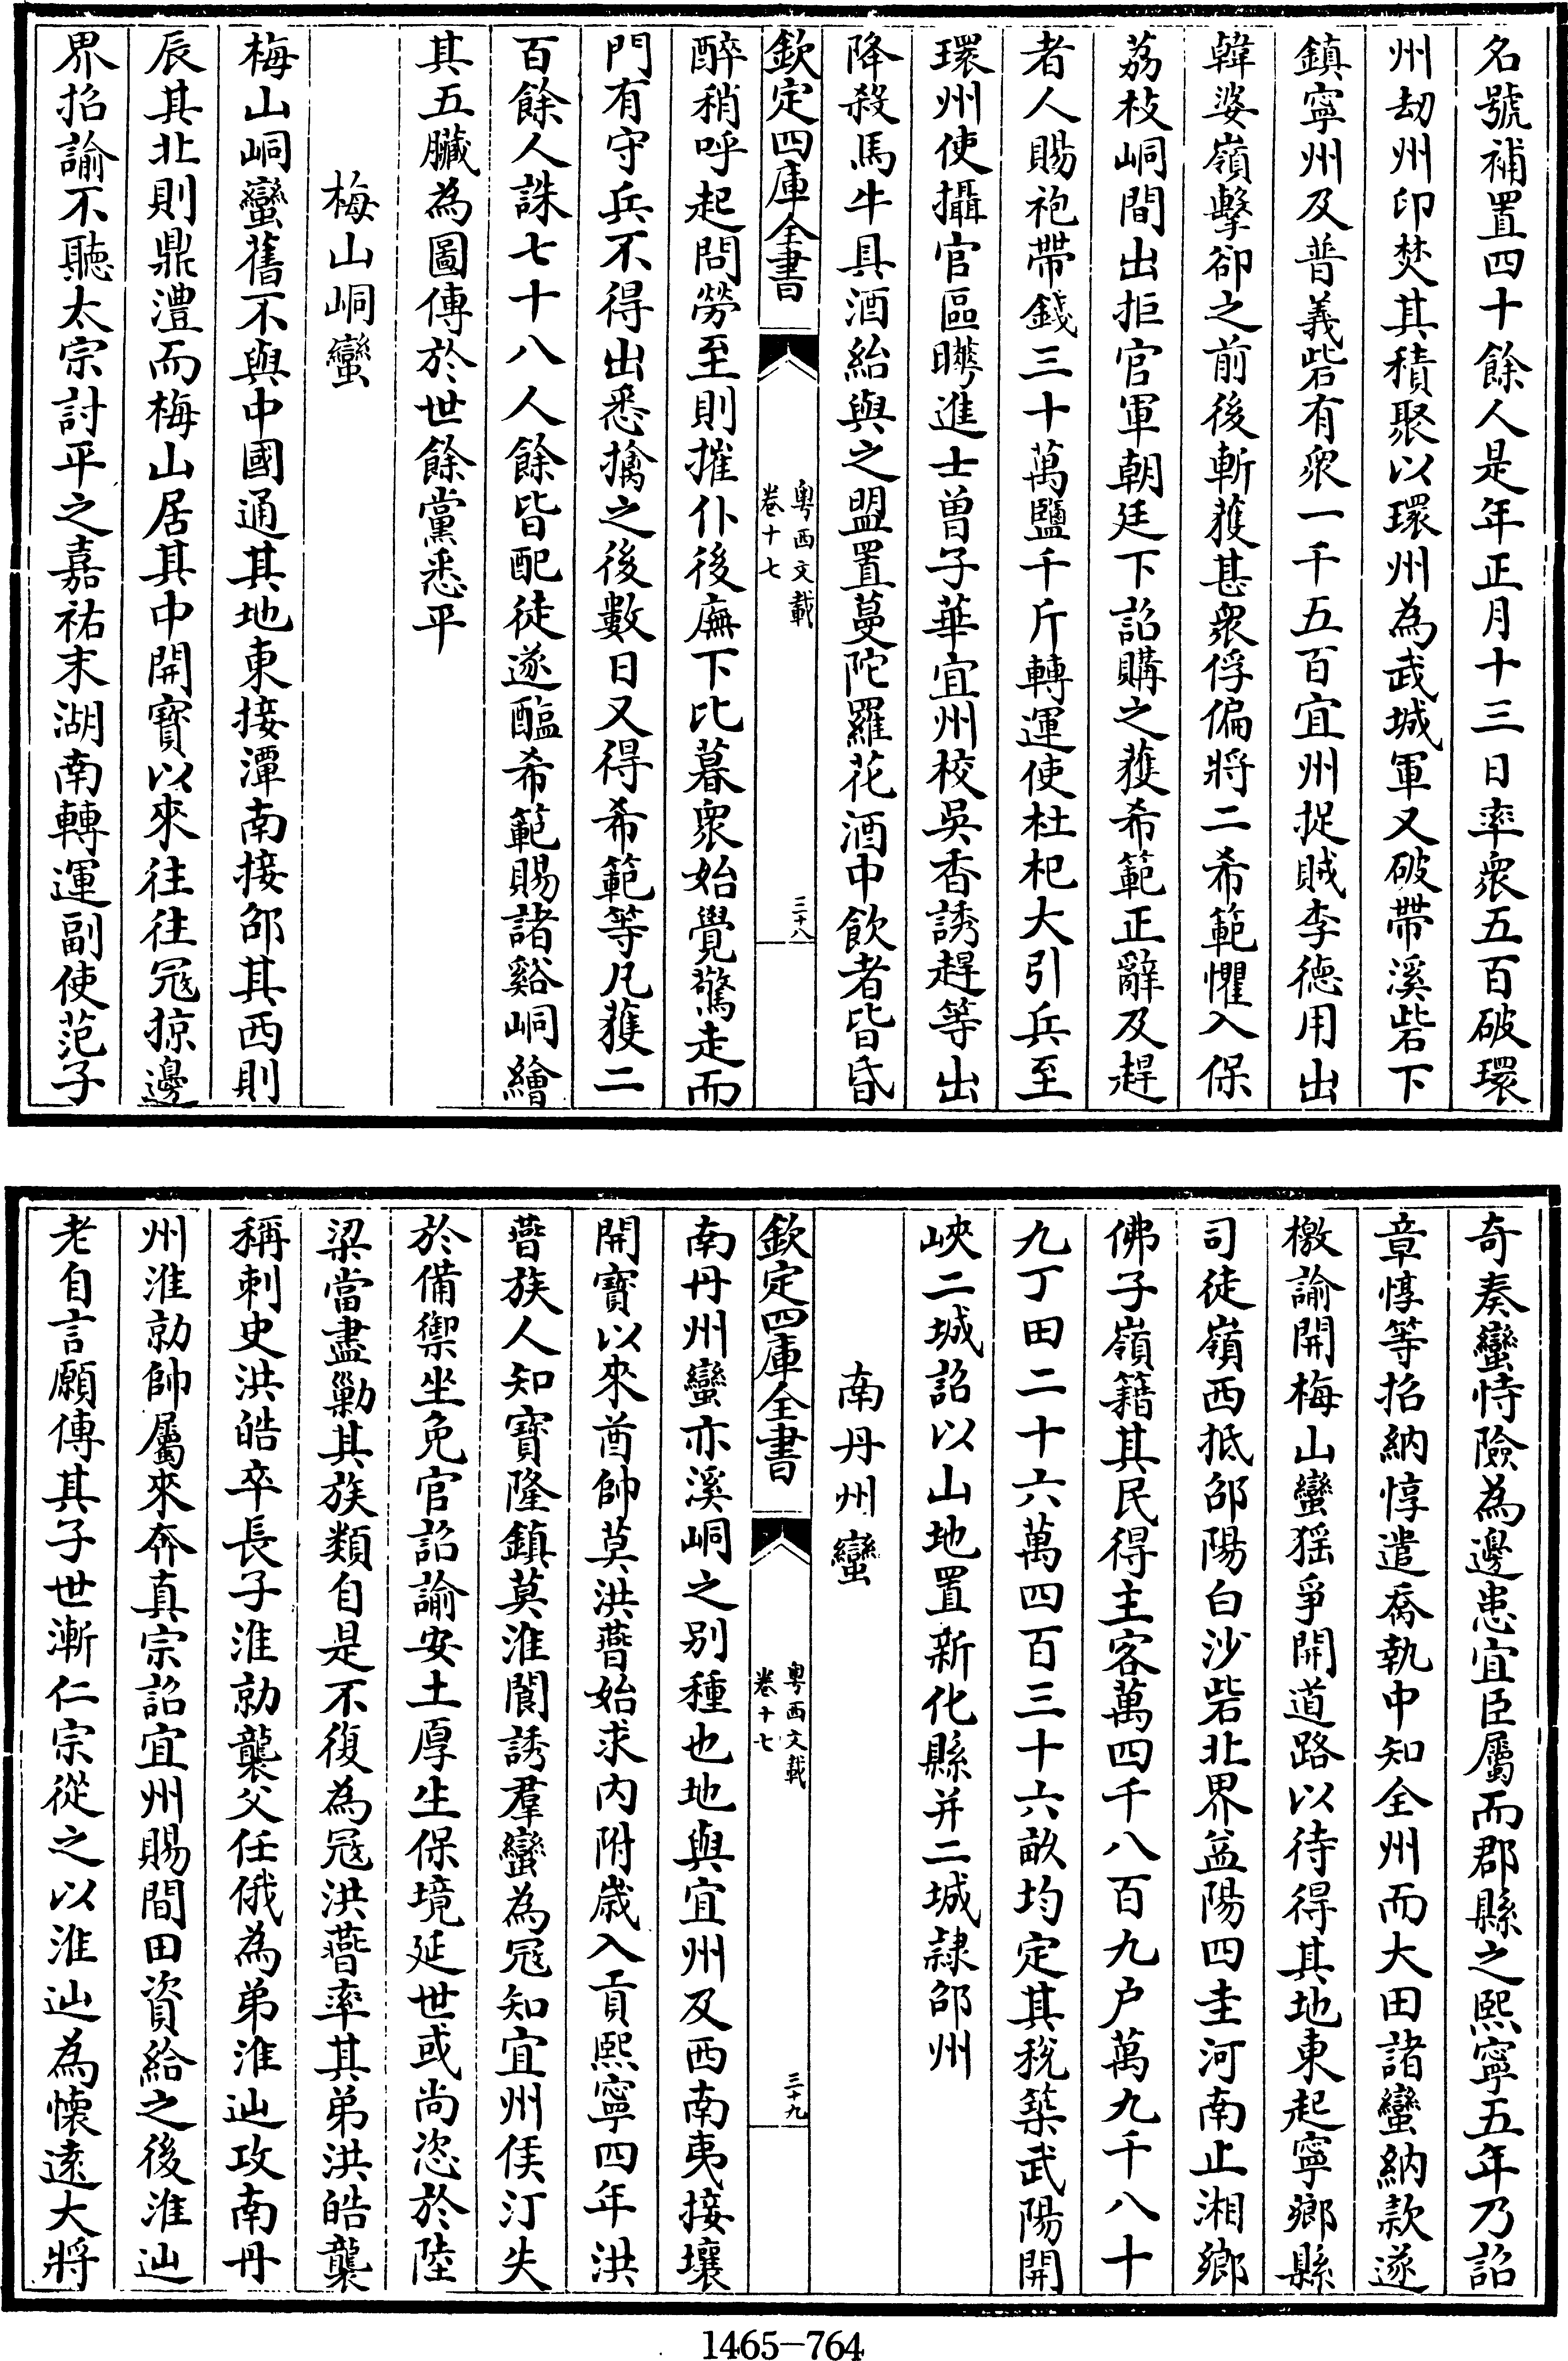 名號補置四十餘人是年正月十三日率衆五百破環
州刼州印焚其積聚以環州為武城軍又破帶溪砦下
鎮寧州及普義砦有衆一千五百宜州捉賊李德用出
韓婆嶺擊卻之前後斬獲甚衆俘偏將二希範懼入保
荔枝峒間出拒官軍朝廷下詔購之獲希範正辭及趕
者人賜袍帶錢三十萬鹽千斤轉運使杜杞大引兵至
環州使攝官區曄進士曽子華宜州校吳香誘趕等出
降殺馬牛具酒紿與之盟置蔓陀羅花酒中飲者皆昏
欽定四庫全書
粤西文載
卷十七
三十八
醉稍呼起問勞至則摧仆後廡下比暮衆始覺驚走而
門有守兵不得出悉擒之後數日又得希範等凡獲二
百餘人誅七十八人餘皆配徒遂醢希範賜諸谿峒繪
其五臟為圖傳於世餘黨悉平
梅山峒蠻
梅山峒蠻舊不與中國通其地東接潭南接邵其西則
辰其北則鼎澧而梅山居其中開寶以來往往冦掠邊
界招諭不聽太宗討平之嘉祐末湖南轉運副使范子
奇奏蠻恃險為邊患宜臣屬而郡縣之熙寧五年乃詔
章惇等招納惇遣喬執中知全州而大田諸蠻納款遂
檄諭開梅山蠻猺爭開道路以待得其地東起寧鄉縣
司徒嶺西抵邵陽白沙砦北界益陽四圭河南止湘鄉
佛子嶺籍其民得主客萬四千八百九户萬九千八十
九丁田二十六萬四百三十六畝均定其稅築武陽開
峽二城詔以山地置新化縣并二城隸邵州
南丹州蠻
欽定四庫全書
粤西文載
卷十七
三十九
南丹州蠻亦溪峒之别種也地與宜州及西南夷接壤
開寶以來酋帥莫洪䔡始求内附歳入貢熙寧四年洪
䔡族人知寶隆鎮莫淮閬誘羣蠻為冦知宜州侯汀失
於備禦坐免官詔諭安土厚生保境延世或尚恣於陸
梁當盡剿其族類自是不復為冦洪䔡率其弟洪皓襲
稱刺史洪皓卒長子淮勍襲父任俄為弟淮辿攻南丹
州淮勍帥屬來奔真宗詔宜州賜閒田資給之後淮辿
老自言願傳其子世漸仁宗從之以淮辿為懐遠大將
1465-764